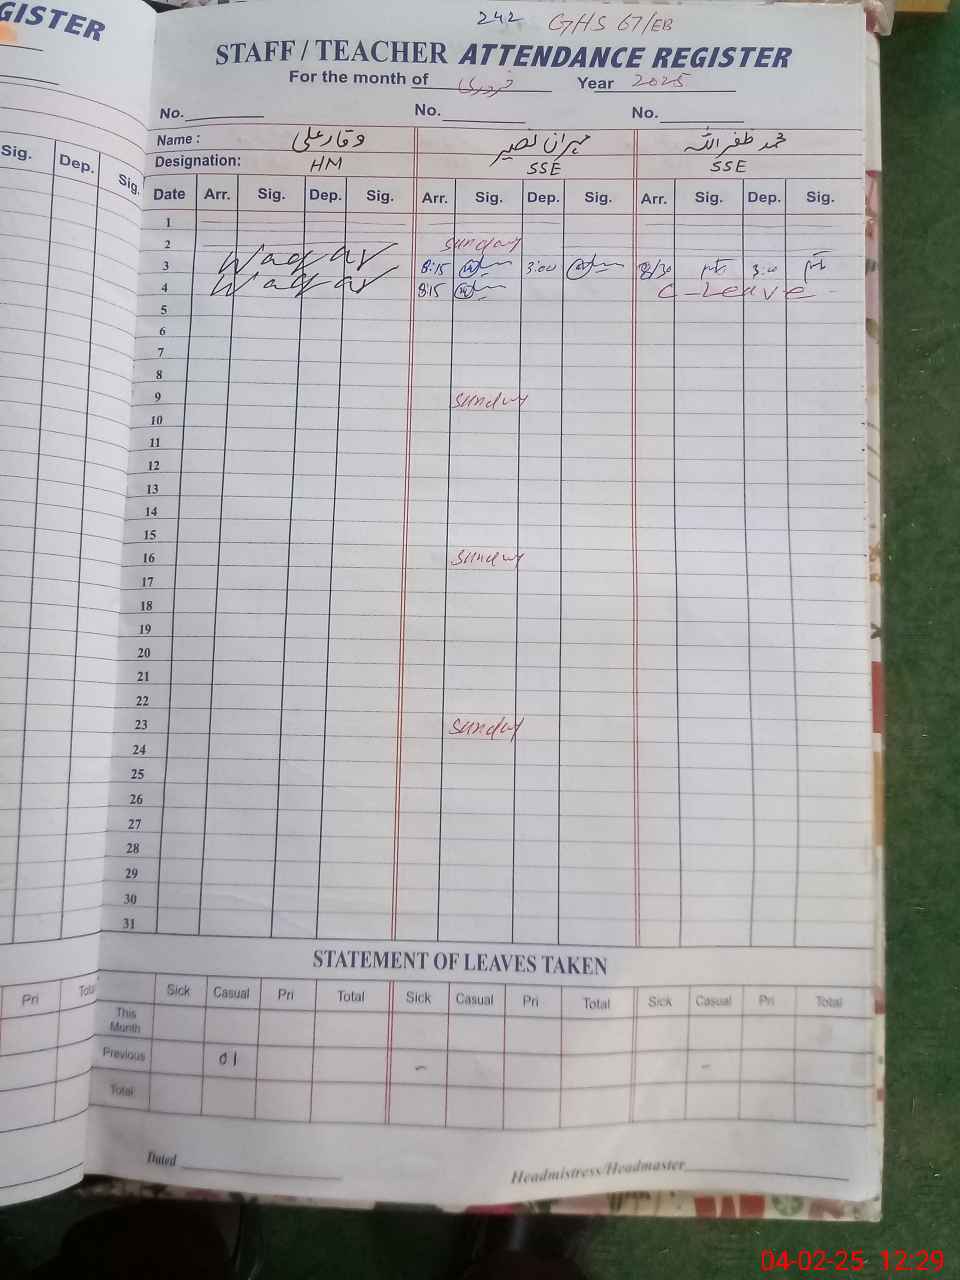 GISTER
242 GHS 67/EB
STAFF / TEACHER ATTENDANCE REGISTER
For the month of فروری Year 2025
No. No. No.
Name : وقار علی مہران نصیر محمد ظفر اللہ
Designation: HM SSE SSE
Sig. Dep. Sig.
Date Arr. Sig. Dep. Sig. Arr. Sig. Dep. Sig. Arr. Sig. Dep. Sig.
1
2 Sunday
3 Waqar 8:15 3:00 8/30 3:00
4 Waqar 8:15 C-Leave
5
6
7
8
9 Sunday
10
11
12
13
14
15
16 Sunday
17
18
19
20
21
22
23 Sunday
24
25
26
27
28
29
30
31
STATEMENT OF LEAVES TAKEN
Pri Total
Sick Casual Pri Total Sick Casual Pri Total Sick Casual Pri Total
This Month
Previous 01 - -
Total
Dated Headmistress/Headmaster
04-02-25 12:29